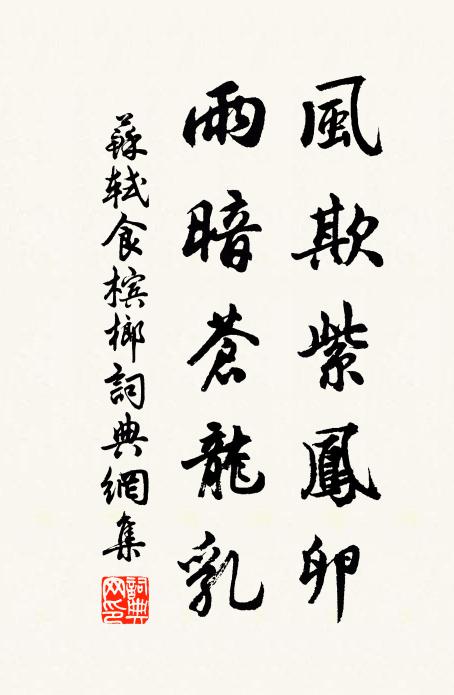 風欺紫鳳卵
雨暗蒼龍乳
蘇軾食檳榔詞典網集
詞典網印